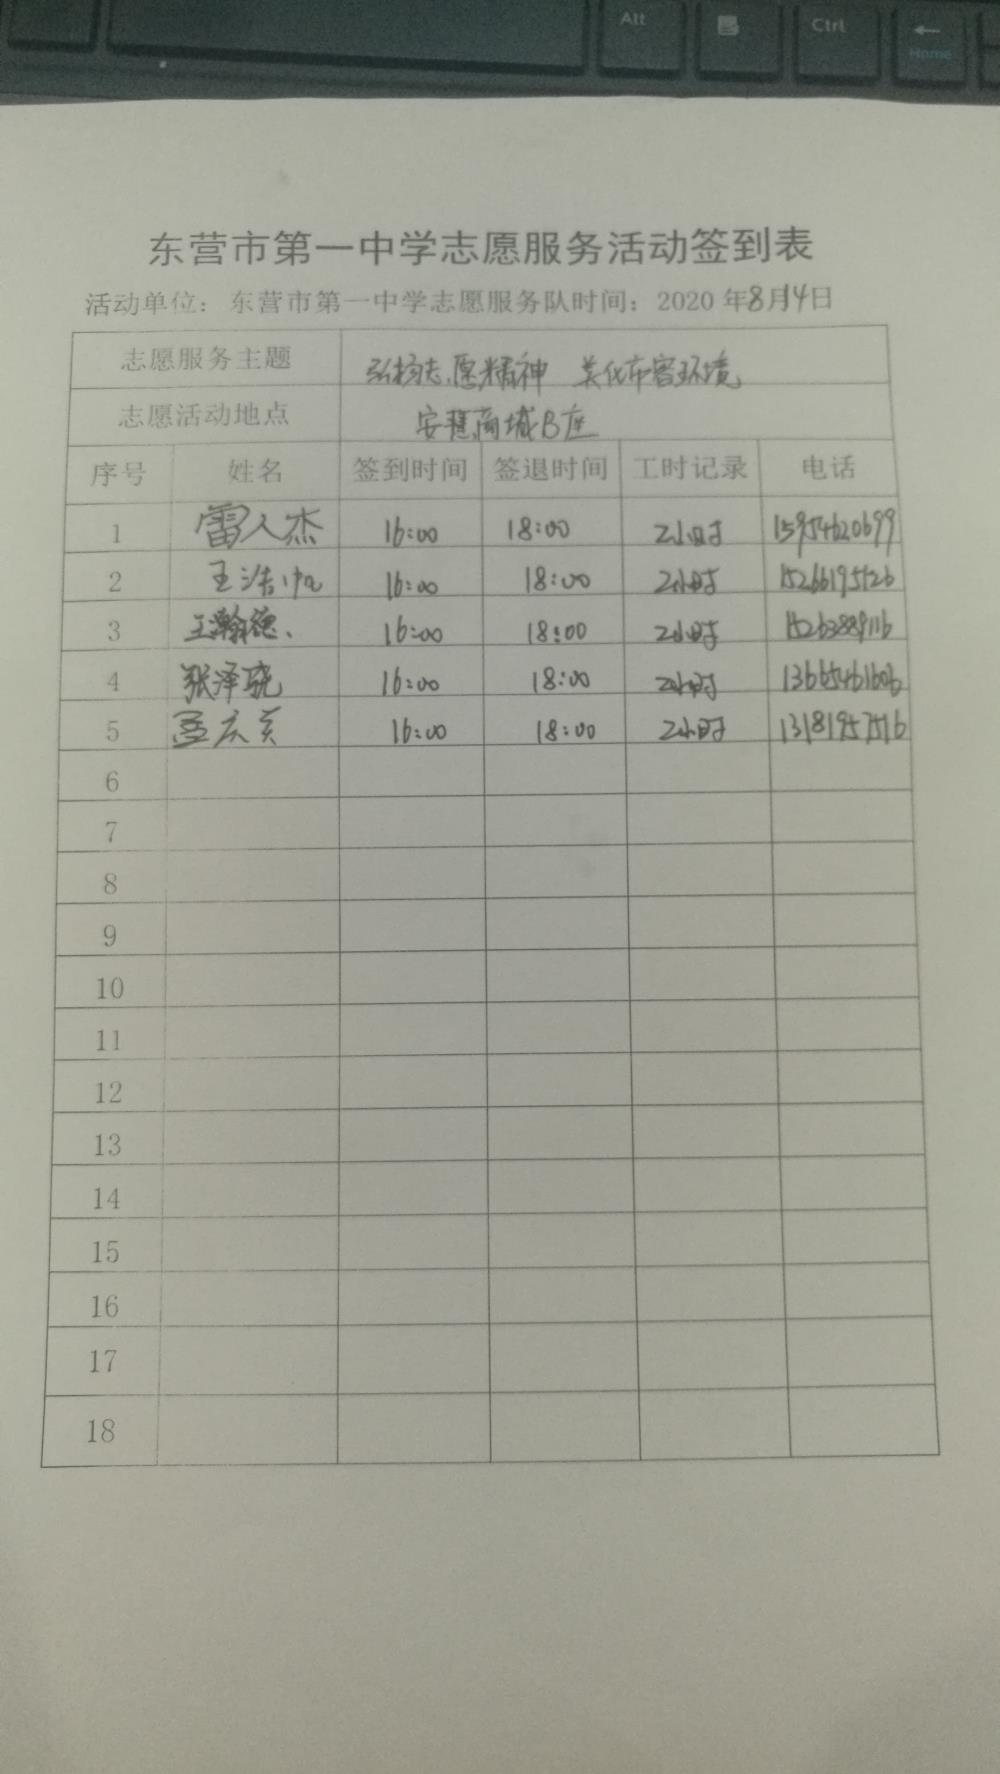 Alt
Ctrl
Home
东营市第一中学志愿服务活动签到表
活动单位：东营市第一中学志愿服务队时间：2020年8月14日
志愿服务主题 弘扬志愿精神 美化市容环境
志愿活动地点 安慧商城B座
序号 姓名 签到时间 签退时间 工时记录 电话
1 雷人杰 16:00 18:00 2小时 15954620699
2 王浩帆 16:00 18:00 2小时 15266195126
3 王瀚德 16:00 18:00 2小时 15263889116
4 张泽骁 16:00 18:00 2小时 13665461606
5 孟庆 16:00 18:00 2小时 13181957516
6
7
8
9
10
11
12
13
14
15
16
17
18